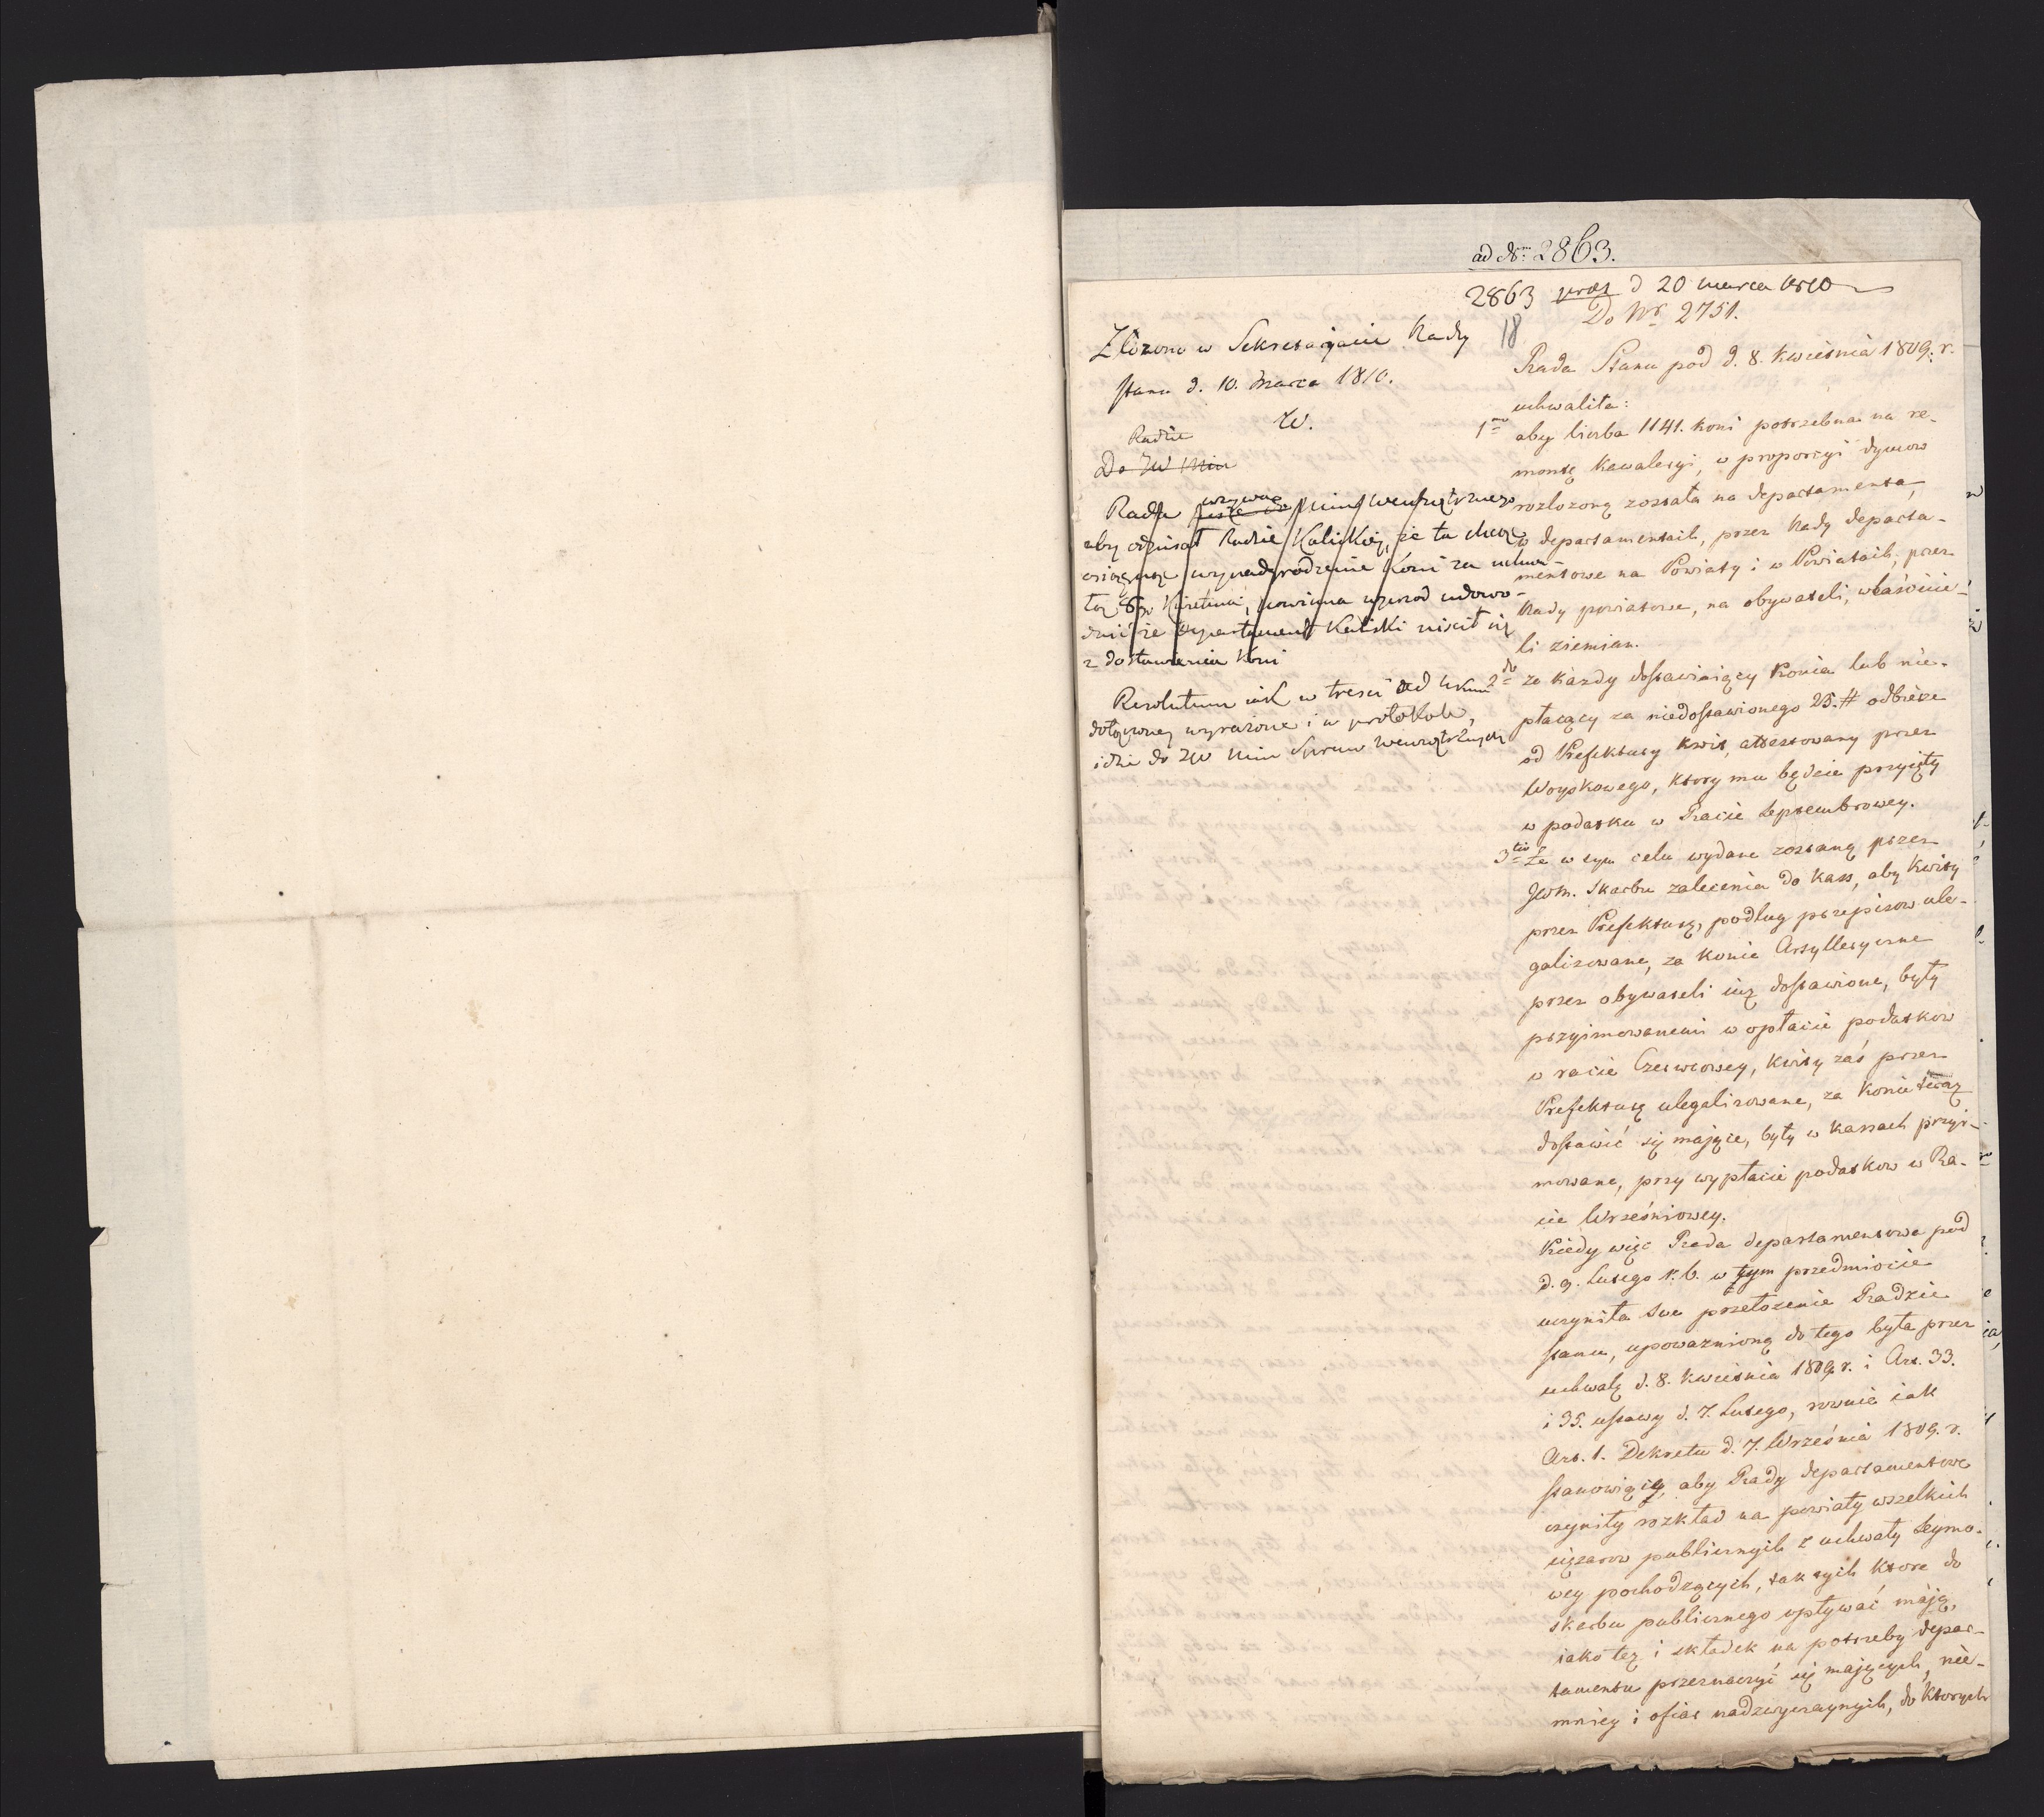 ad Nrm 2863.
2863 præs d 20 marca 1810
Do Nr 2751.
18
Złożono w Sekretaryacie Rady
Stanu d. 10. Marca 1810.
W.
Radzie
Do JW Min
Rada wzywa Min Wewnętrznego
aby odpisał Radzie Kaliskiey, że ta chcąc
osiągnąć wynadgrodzenie Koni za uchwa-
łą 8 Kwietnia, powinna wprzod udowo-
dnić że Departament Kaliski uiścił się
z dostawienia Koni
Resolutum iak w treści ad
dołączoney wyrażone i w protokole,
idzie do JW Min Spraw Wewnętrznych
Rada Stanu pod d. 8. Kwietnia 1809. r.
uchwaliła:
1mo aby liczba 1141. koni potrzebna na re-
montę Kawaleryi, w proporcyi dymow
rozłożoną została na departamenta,
w departamentach, przez Rady departa-
mentowe na Powiaty i w Powiatach, przez
Rady powiatowe, na obywateli, właścicie-
li ziemian.
2do że każdy dostawiaiący Konia lub nie-
płacący za niedostawionego 25. # odbierze
od Prefektury Kwit, attestowany przez
Woyskowego, ktory mu będzie przyięty
w podatku w Racie Septembrowey.
3tio Że w tym celu wydane zostaną przez
JWM. Skarbu zalecenia do Kass, aby Kwity
przez Prefekturę, podług przepisow ule-
galizowane, za Konie Artylleryczne
przez obywateli iuż dostawione, były
przyimowanemi w opłacie podatkow
w racie Czerwcowey, Kwity zaś przez
Prefekturę ulegalizowane, za Konie teraz
dostawić się maiące, były w Kassach przyi-
mowane, przy wypłacie podatkow w Ra-
cie Wrześniowey.
Kiedy więc Rada departamentowa pod
d. 9. Lutego r. b. w tym przedmiocie
uczyniła swe przełożenie Radzie
Stanu, upoważnioną do tego była przez
uchwałę d. 8. Kwietnia 1809. r. i Art. 33.
i 35. ustawy d. 7. Lutego, rownie iak
Art. 1. Dekretu d. 7. Września 1809. r.
stanowiący, aby Rady departamentowe
czyniły rozkład na powiaty wszelkich
ciężarow publicznych z uchwały Seymo-
wey pochodzących, tak tych ktore do
skarbu publicznego wpływać maią,
iako też i składek na potrzeby depar-
tamentu przeznaczyć się maiących, nie-
mniey i ofiar nadzwyczaynych, do ktorych